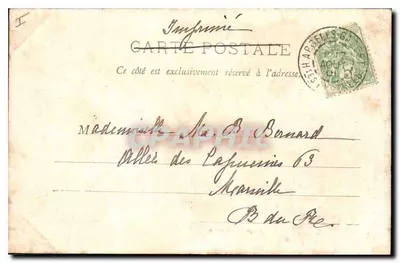 Imprimé
CARTE POSTALE
Ce côté est exclusivement réservé à l'adresse
Mademoiselle M. B Bernard
Allées des Capucines 63
Marseille
B du Rh.